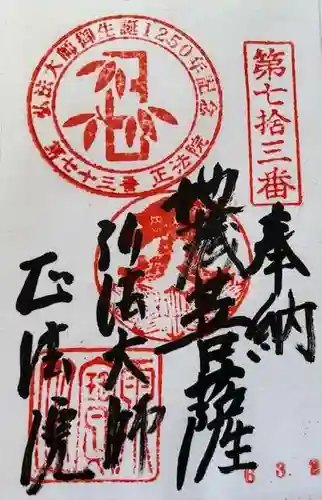 第七拾三番
奉納
地蔵菩薩
弘法大師
正法院
弘法大師御生誕1250年記念
第七十三番 正法院
6. 3.